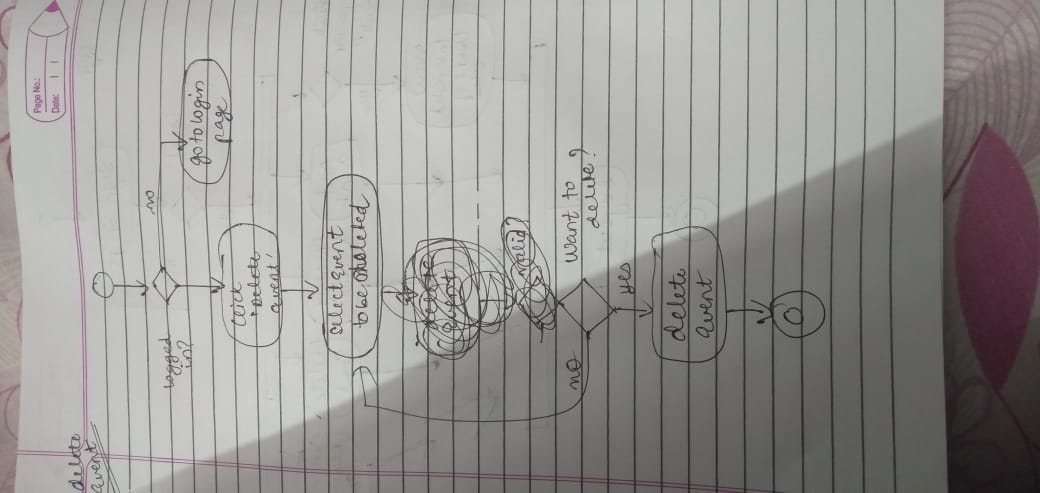 Page No.:
Date: | |
delete
event
logged
in?
no
go to login
page
click
"delete
event"
select event
to be deleted
delete
event
valid?
Want to
delete?
no
yes
delete
event